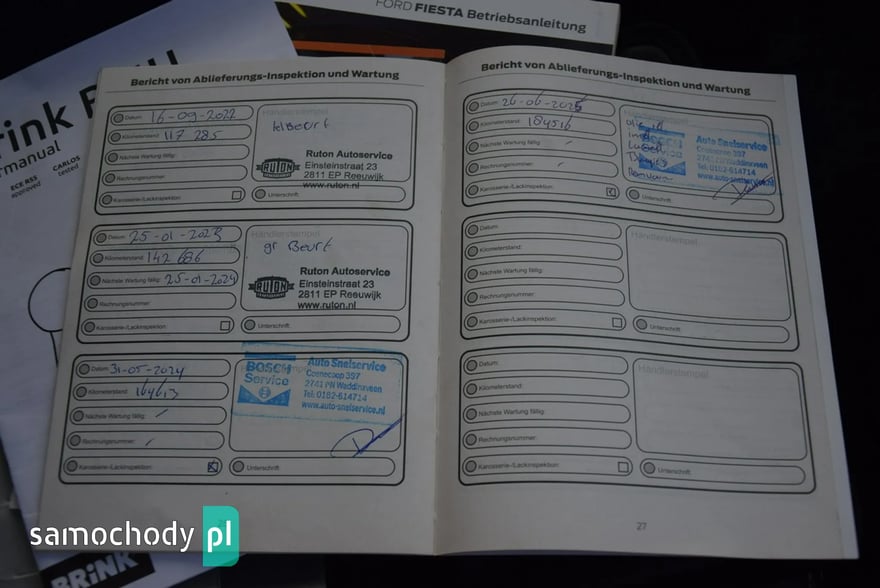 FORD FIESTA Betriebsanleitung
rink
rmanual
ECE R55
approved
CARLOS
tested
Bericht von Ablieferungs-Inspektion und Wartung
Datum: 16-09-2022
Kilometerstand: 117 285
Nächste Wartung fällig:
Rechnungsnummer:
Karosserie-/Lackinspektion:
Händlerstempel
kl Beurt
RUTON
Ruton Autoservice
Einsteinstraat 23
2811 EP Reeuwijk
www.ruton.nl
Unterschrift:
Datum: 25-01-2023
Kilometerstand: 142 686
Nächste Wartung fällig: 25-01-2024
Rechnungsnummer:
Karosserie-/Lackinspektion:
Händlerstempel
gr Beurt
RUTON
Ruton Autoservice
Einsteinstraat 23
2811 EP Reeuwijk
www.ruton.nl
Unterschrift:
Datum: 31-05-2024
Kilometerstand:
Nächste Wartung fällig:
Rechnungsnummer:
Karosserie-/Lackinspektion:
BOSCH
Service
Auto Snelservice
Coenecoop 397
2741 PN Waddinxveen
Tel: 0182-614714
www.auto-snelservice.nl
Unterschrift:
Bericht von Ablieferungs-Inspektion und Wartung
Datum: 26-06-2025
Kilometerstand: 184516
Nächste Wartung fällig:
Rechnungsnummer:
Karosserie-/Lackinspektion:
Auto Snelservice
Coenecoop 397
2741 PN Waddinxveen
Tel: 0182-614714
www.auto-snelservice.nl
Unterschrift:
Datum:
Kilometerstand:
Nächste Wartung fällig:
Rechnungsnummer:
Karosserie-/Lackinspektion:
Händlerstempel
Unterschrift:
Datum:
Kilometerstand:
Nächste Wartung fällig:
Rechnungsnummer:
Karosserie-/Lackinspektion:
Händlerstempel
Unterschrift:
27
samochody pl
BRINK